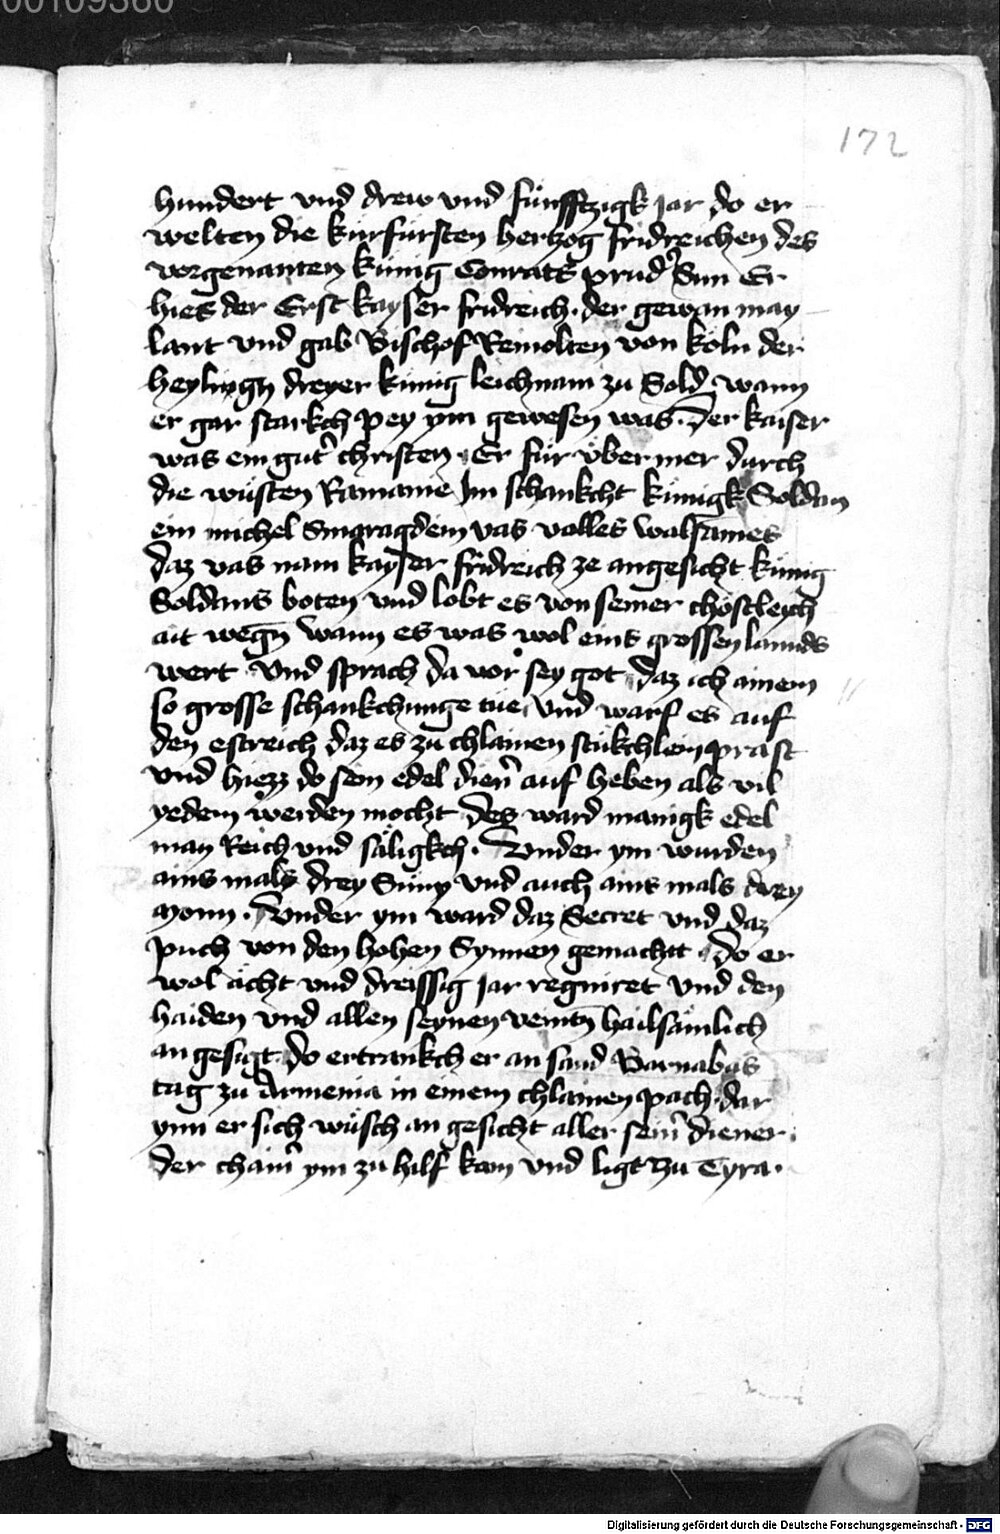 00109360
172
hundert vnd drew vnd fünfftzigk Jar do er
welten die kürfürsten hertzog fridreichen des
vorgenanten künig Conrats prud̕ Sun Er
hies der Erst kayser fridreich · der gewan may
lant vnd gab Bischof Reinolten von köln der
heyligñ dreyer künig leichnam zu Sold · wann
er gar starkch pey ym gewesen was · Der kaiser
was ein gut̕ christen · Er für über mer durch
die wüsten Ramanie Im schankcht künigk Soldan
ein michel Smaragdein vas volles walsames
daz vas nam kayser fridreich ze angesicht künig
Soldans boten vnd lobt es von seiner chöstleych
ait wegñ wann es was wol eins grossen lannds
wert Vnd sprach da vor sey got daz ich ainem
so grosse schankchunge tüe Vnd warf es auf
den estreich daz es zu chlainen stükchlein prast
vnd hiezz do sein edel dien̕ auf heben als vil
yedem werden mocht Des ward manigk edel
man Reich vnd säligkch · Vnder ym wurden
ains mals drey Sunn vnd auch ains mals drey
Monn · Vnder ym ward daz Secret vnd daz
puch von den hohen Synnen gemacht · do er
wol acht vnd dreissig Jar regniret vnd den
haiden vnd allen seynen veintñ hailsämlich
an gesigt · do ertrankch er an sand Barnabas
tag zu Armenia in einem chlainen pach · dar
ynn er sich wüsch an gesicht aller sein̕ diener ·
der chain̕ ym zu hilf kam vnd ligt zu Tyra ·
Digitalisierung gefördert durch die Deutsche Forschungsgemeinschaft - DFG